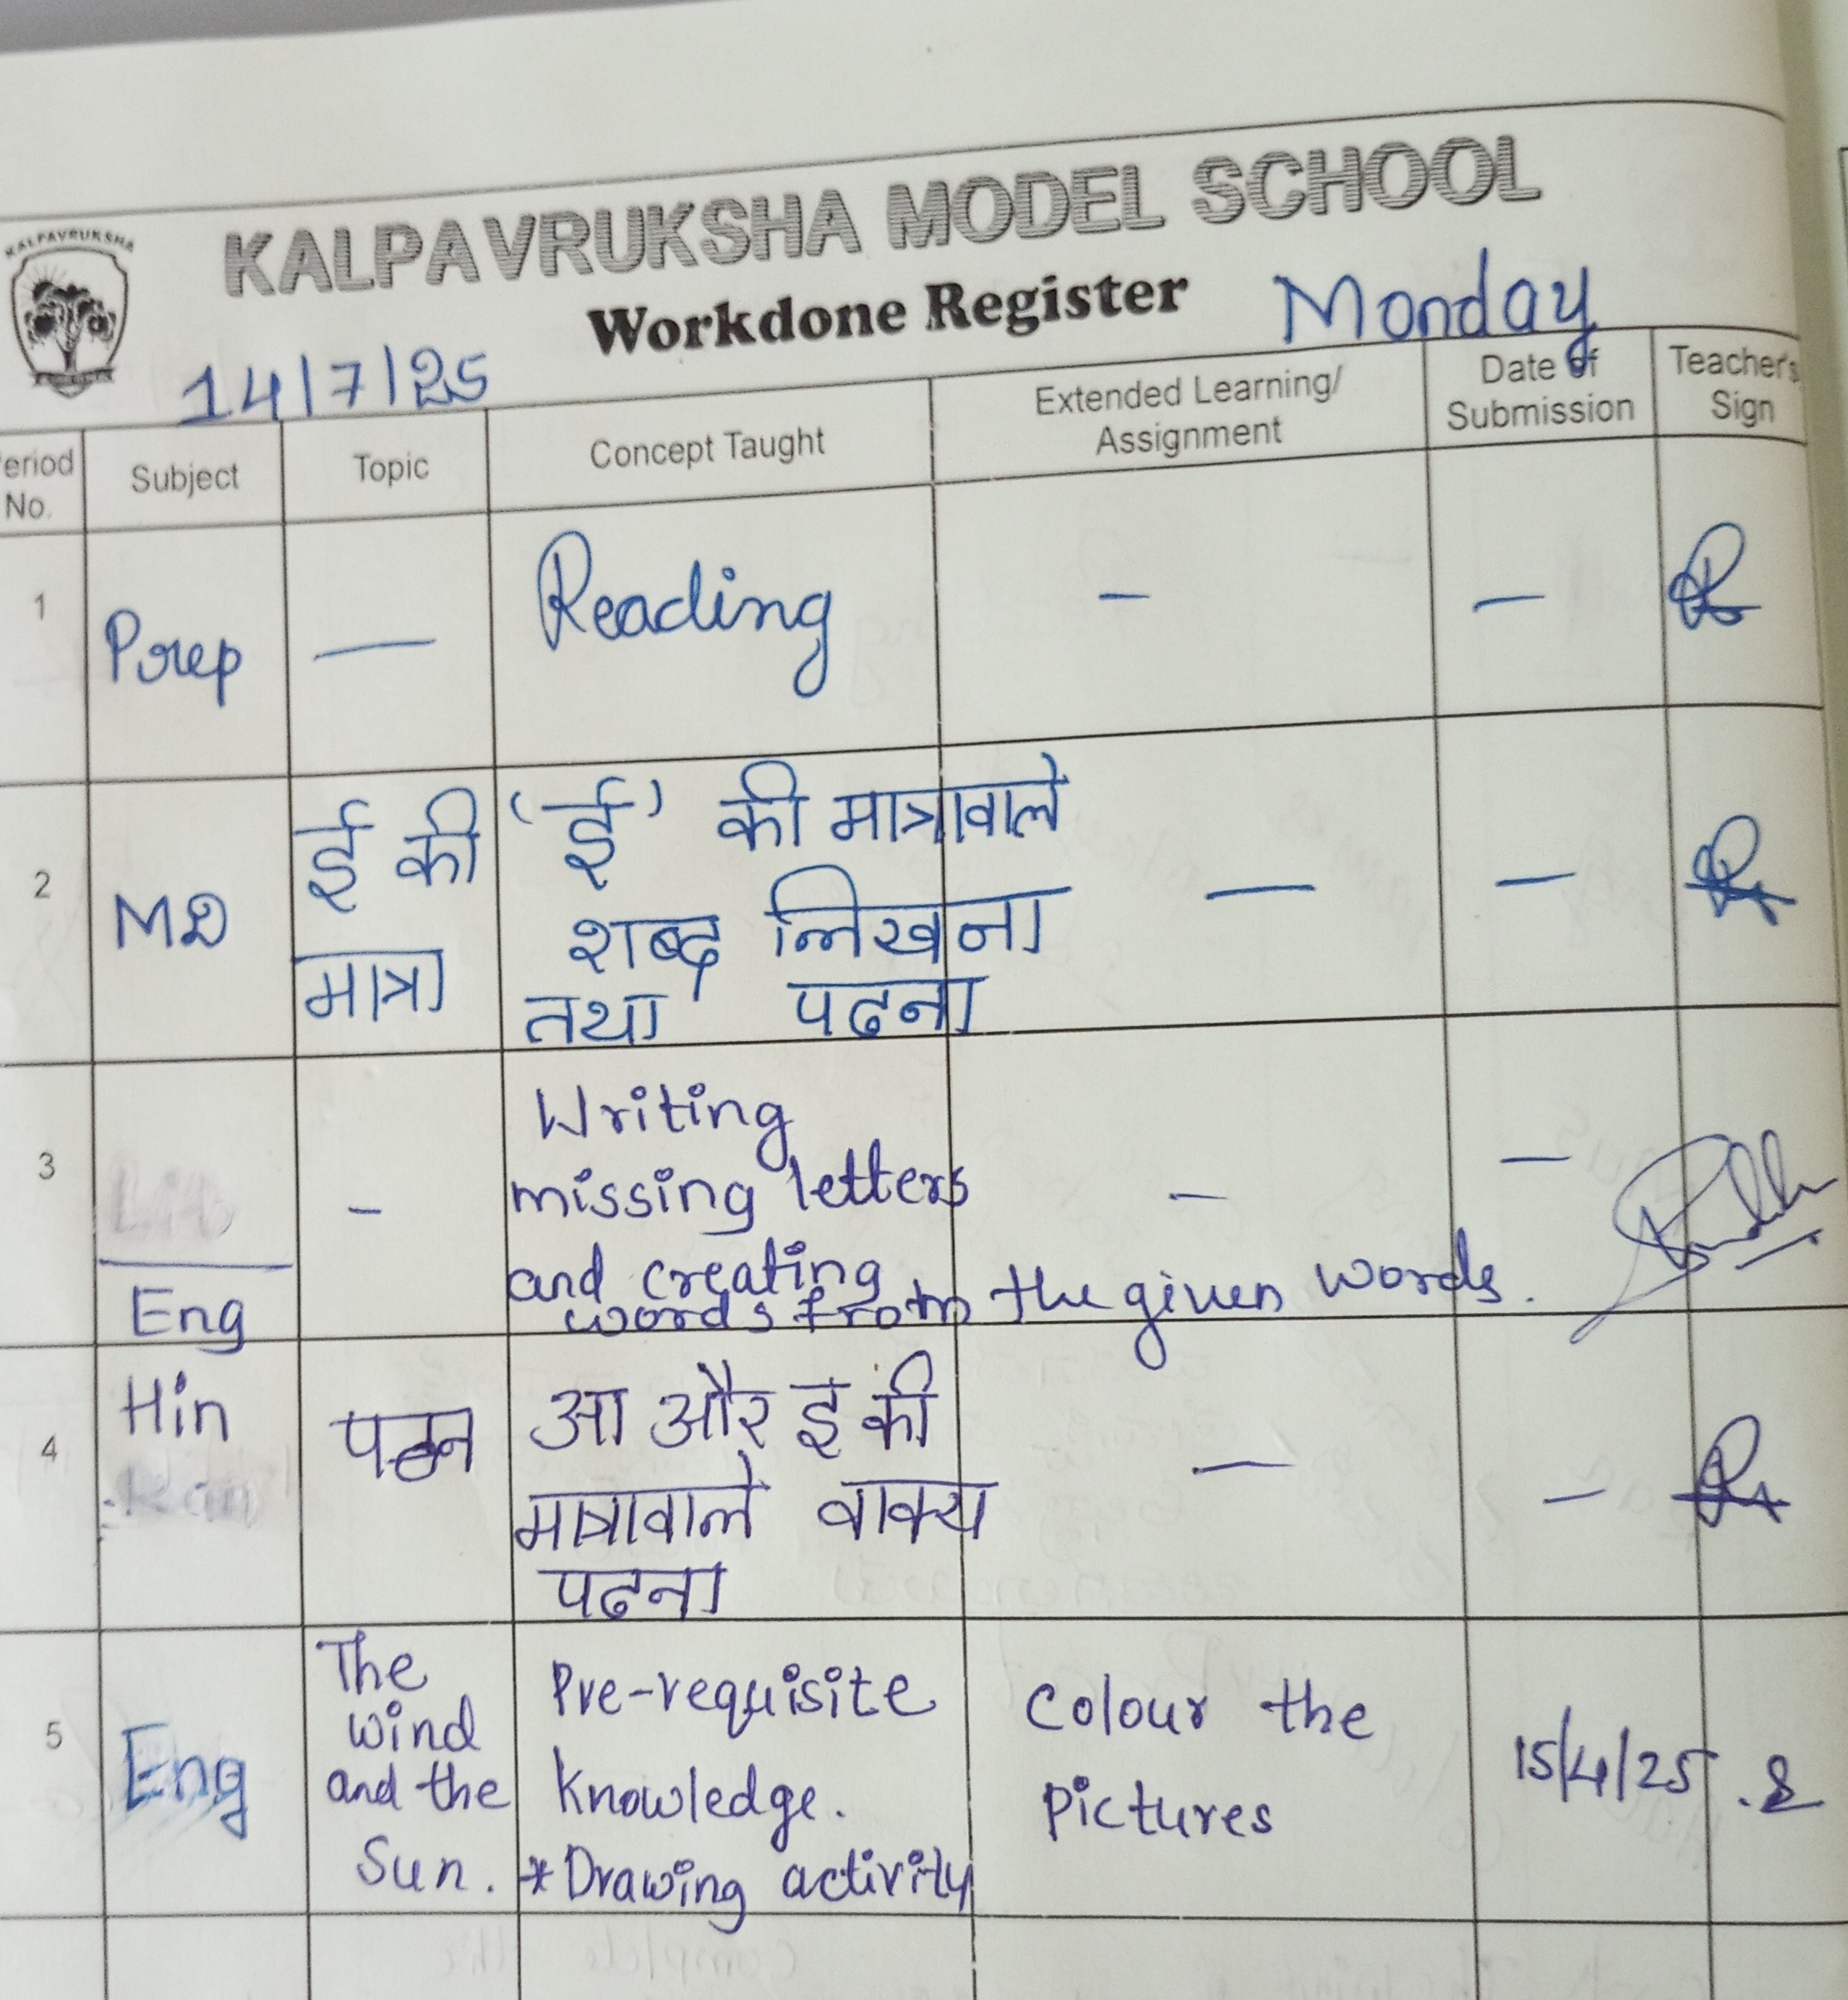 KALPAVRUKSHA
KALPAVRUKSHA MODEL SCHOOL
Workdone Register Monday
14/7/25
eriod No. Subject Topic Concept Taught Extended Learning/ Assignment Date of Submission Teacher's Sign
1 Prep — Reading - -
2 MD ई की मात्रा
'ई' की मात्रावाले
शब्द लिखना
तथा पढना — -
3 Eng -
Writing
missing letters
and creating
words from the given words. - -
4 Hin पठन
आ और इ की
मात्रावाले वाक्य
पढना — -
5 Eng
The
wind
and the
Sun.
Pre-requisite
knowledge.
*Drawing activity
Colour the
pictures
15/4/25